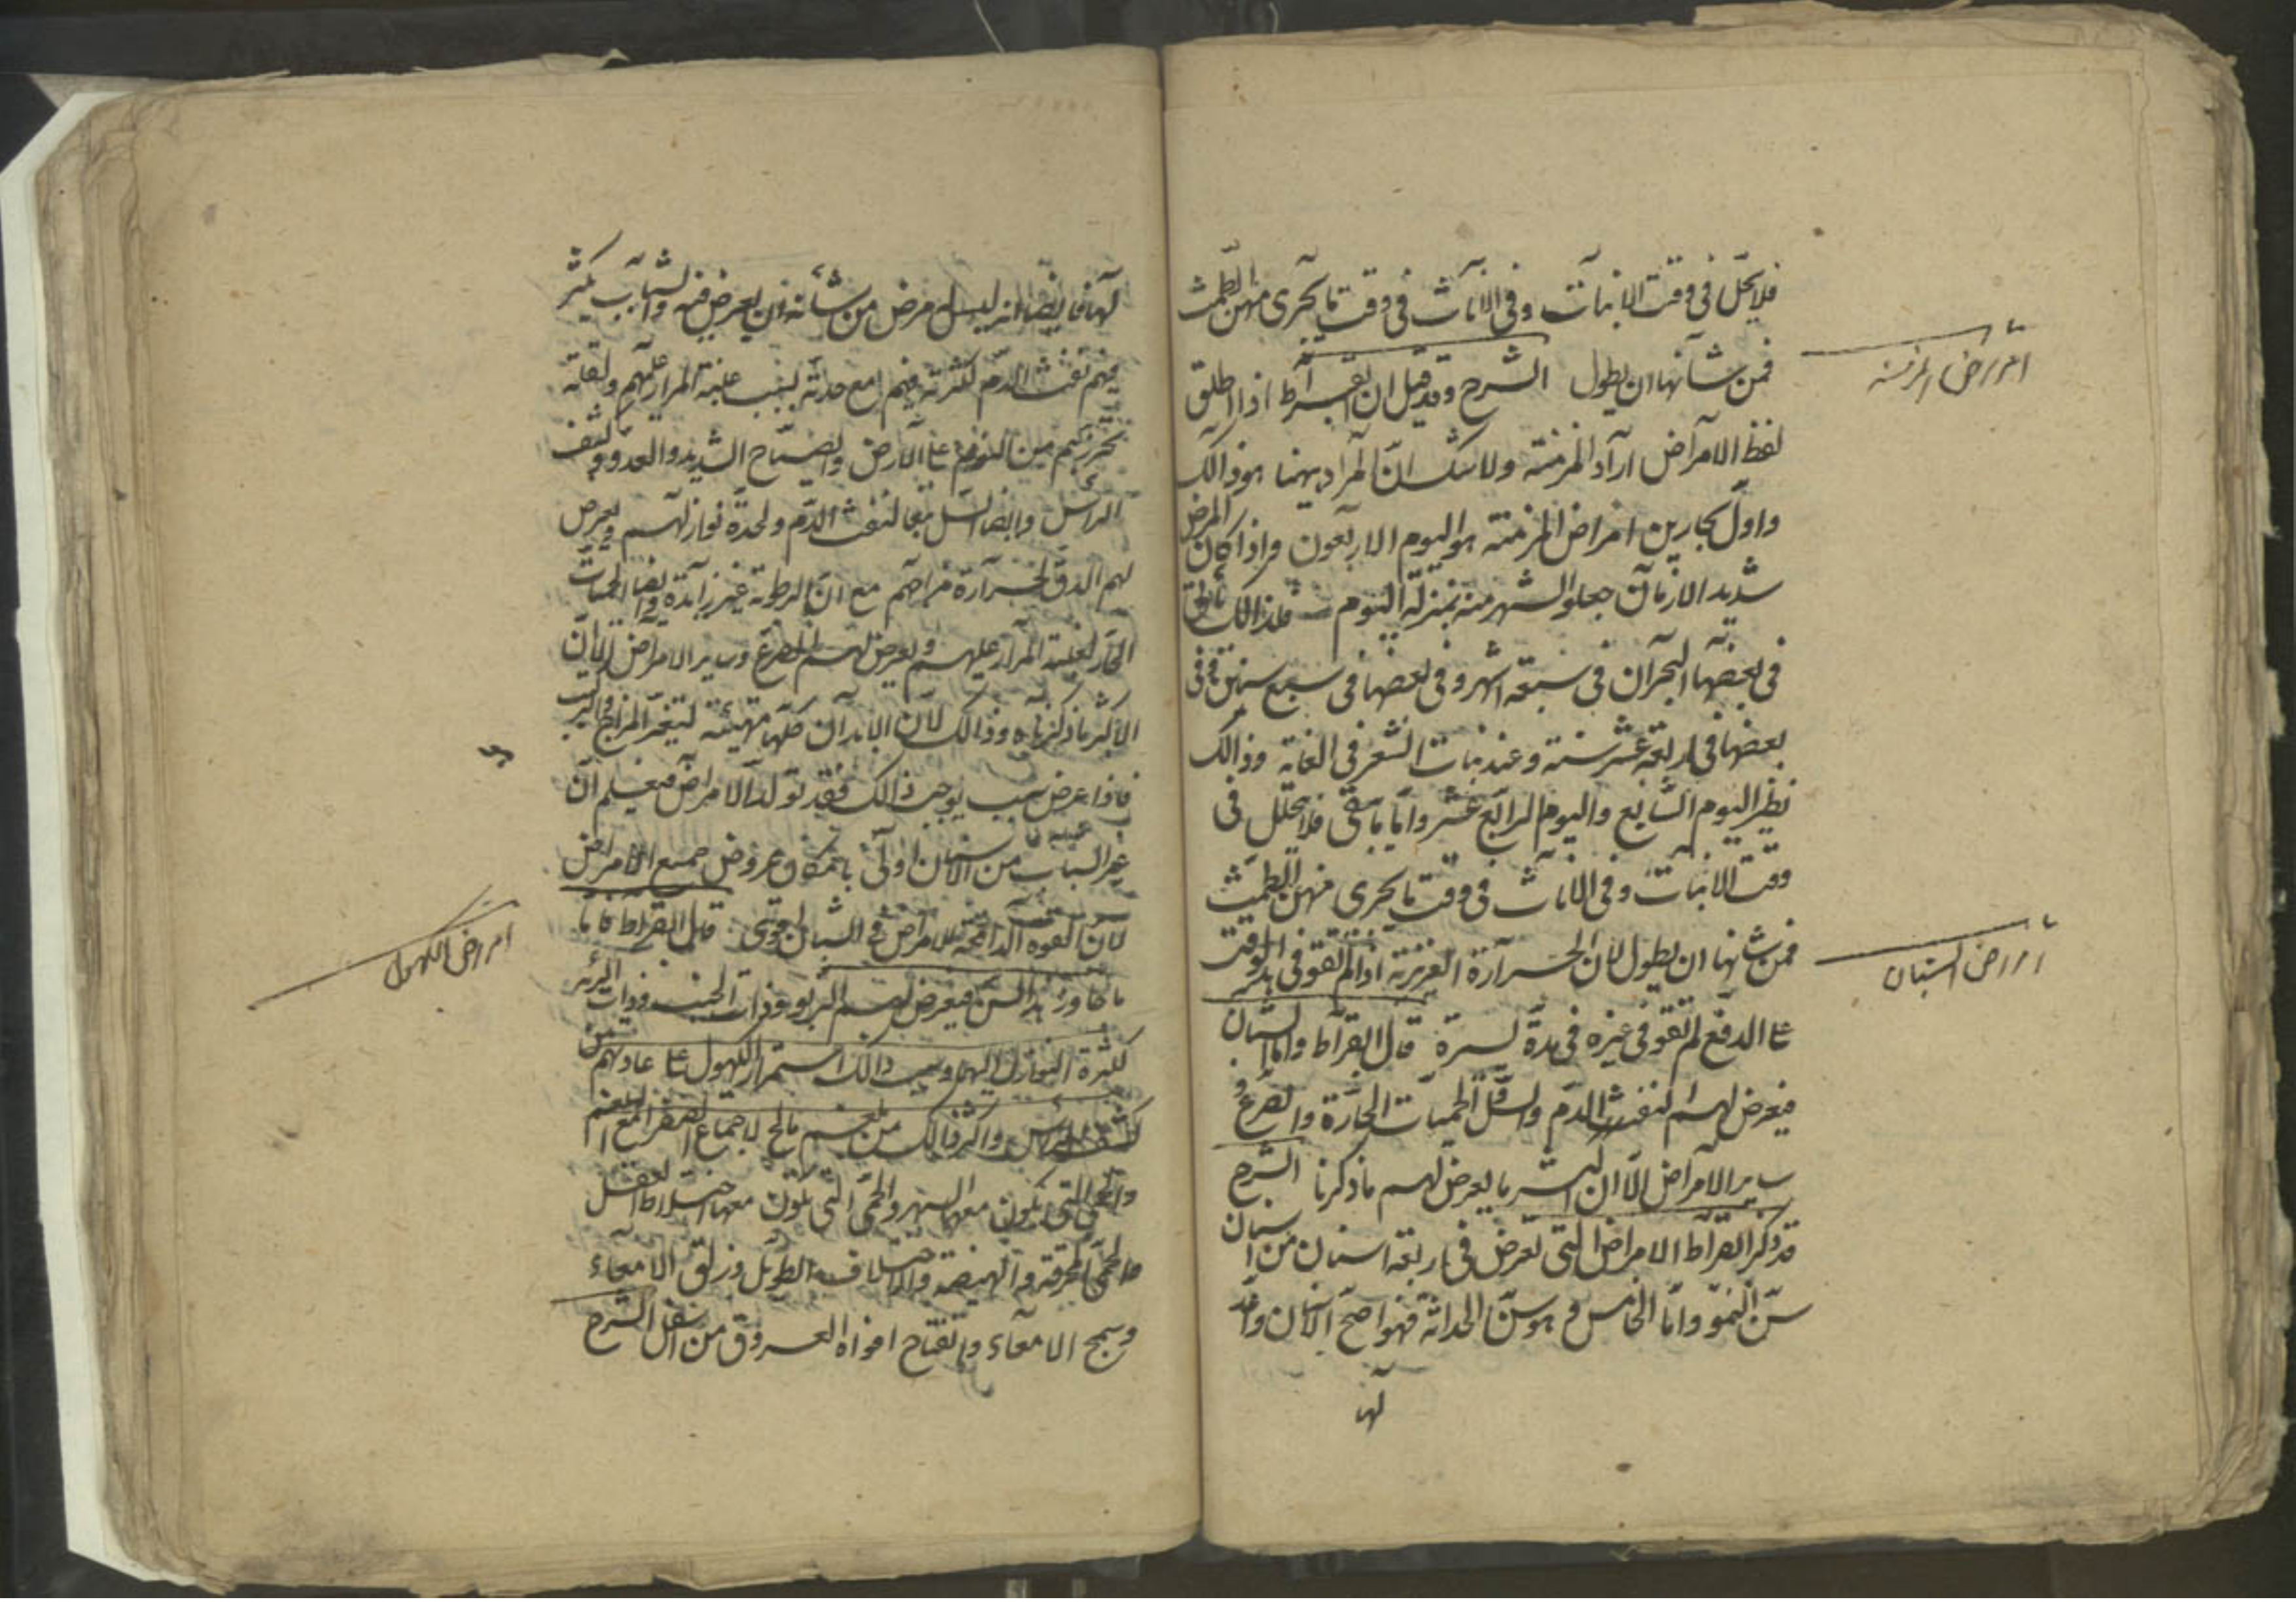 فلا يحل فى وقت الانبات وفى الاناث فى وقت ما يجرى منهن الطمث
فمن شانها ان يطول الشرح وقد قيل ان ابقراط اذا اطلق
امراض المزمنة
لفظ الامراض اراد المزمنة ولا شك ان المراد بهنا هو ذالك
واول بحارين امراض المزمنة هو اليوم الاربعون واذا كان المرض
شديد الازمان جعلو الشهر منه بمنزلة اليوم فلذالك
فى بعضها البحران فى سبعة اشهر وفى بعضها فى سبع سنين وفى
بعضها فى اربعة عشر سنة وعند نبات الشعر فى العانة وذالك
نظير اليوم السابع واليوم الرابع عشر واما ما بقى فلا يتحلل فى
وقت الانبات وفى الاناث فى وقت ما يجرى منهن الطمث
فمن شانها ان يطول لان الحرارة الغريزية اذا لم تقو فى هذا الوقت
امراض الشبان
على الدفع لم تقو فى غيره فى مدة يسيرة قال ابقراط واما الشبان
فيعرض لهم لنفث الدم والسل الحميات الحادة والصرع و
ساير الامراض الا ان اكثر ما يعرض لهم ما ذكرنا الشرح
قد ذكر ابقراط الامراض التى تعرض فى اربعة اسنان من اسنان
سن النمو واما الخامس وهو سن الحداثة فهو اصح الاسنان
لها
لها فايضا انه ليس مرض من شأنه ان يعرض فيه والشباب يكثر
فيهم نفث الدم لكثرته فيهم مع حدته بسبب غلبة المرار عليهم ولقلة
تحرزهم من النوم على الارض والصياح الشديد والعدو وكشف
الراس وايضا السل تبعا لنفث الدم ولحدة نوازلهم ويعرض
لهم الدق لحرارة مزاجهم مع ان الرطوبة غير زائدة وايضا الحميات
الحادة لغلبة المرار عليهم ويعرض لهم الصرع وساير الامراض الا ان
الاكثر ما ذكرناه وذالك لان الابدان كلها متهيئة لتغير المزاج
فاذا عرض سبب يوجب ذالك فقد تولد الامراض فيعلم ان
غير الشباب من الاسنان اولى بامكان عروض جميع الامراض
لان القوة الدافعة للامراض فى الشبان قوى قال ابقراط فاما
امراض الكهول
ما جاوز هذا السن فيعرض لهم الربو وذات الجنب وذات الرئة
لكثرة النوازل اليها وسبب ذالك استمرار الكهول على عادتهم من
كشف الراس واكثر ذالك من بلغم مالح لاجتماع الصفرا مع البلغم
والحمى التى يكون معها السهر والحمى التى يكون معها اختلاط العقل
والحمى المحرقة والهيضة والاختلاف الطويل وزلق الامعاء
وسحج الامعاء وانفتاح افواه العروق من اسفل الشرح